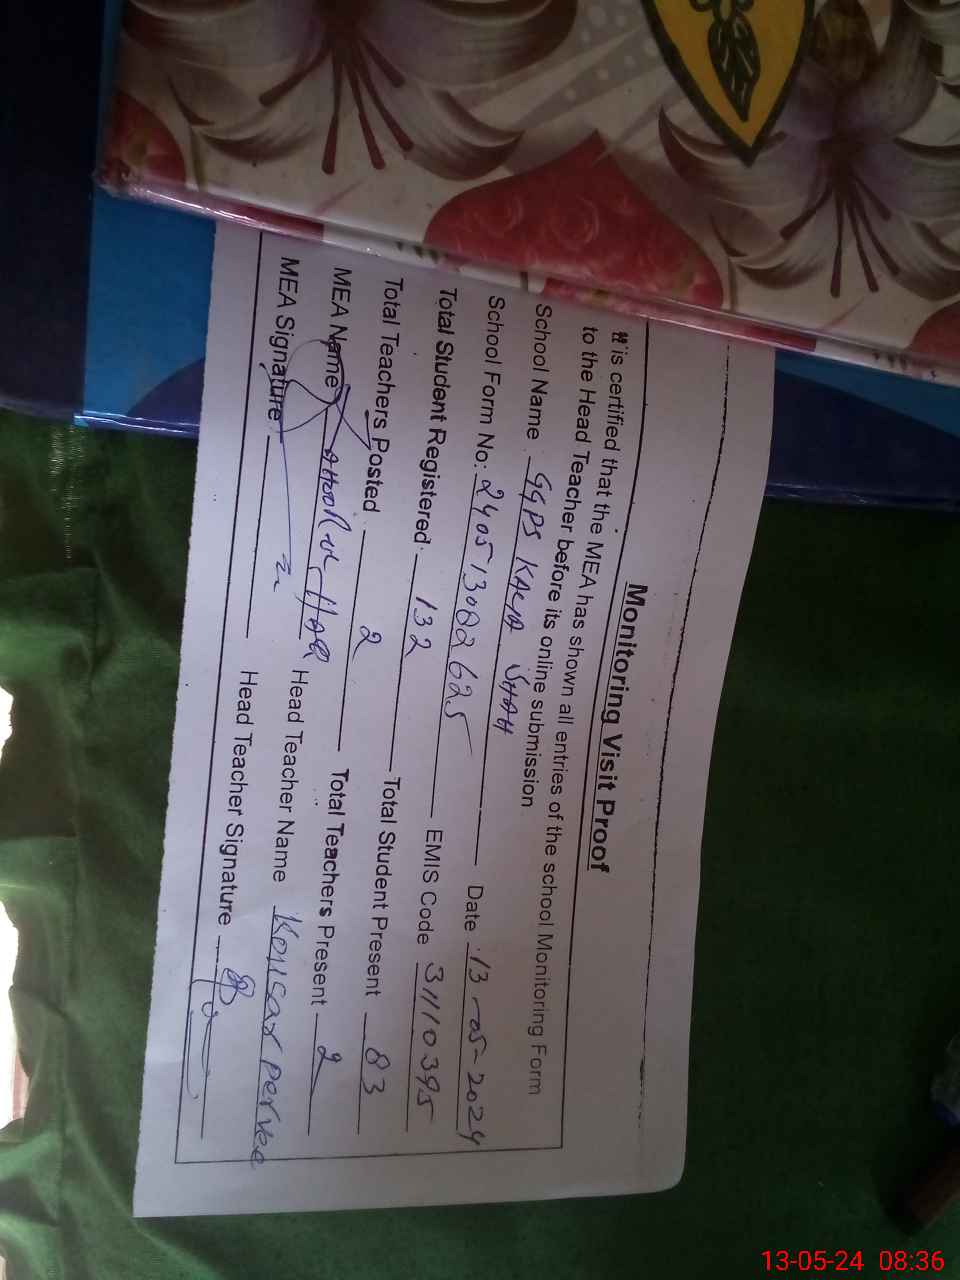 Monitoring Visit Proof
It is certified that the MEA has shown all entries of the school Monitoring Form
to the Head Teacher before its online submission.
School Name: GGPS KAcyA SHAH
School Form No: 240513082625 Date: 13-05-2024
Total Student Registered: 132 EMIS Code 31110395
Total Teachers Posted 2 Total Student Present 83
MEA Name Total Teachers Present 2
Head Teacher Name Kousar pervee
MEA Signature Head Teacher Signature
13-05-24 08:36